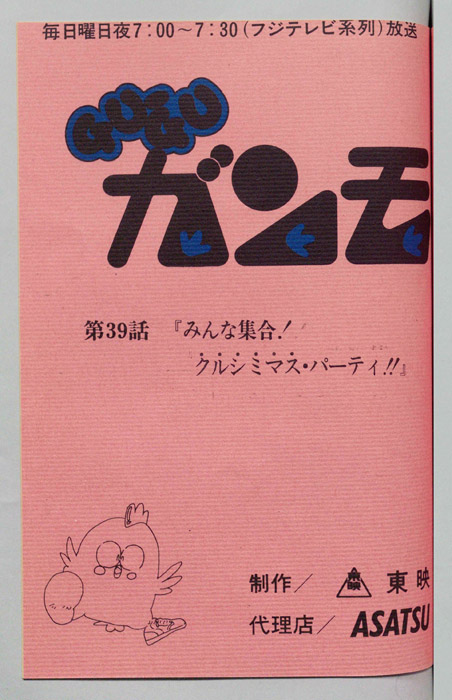 毎日曜日夜7:00〜7:30(フジテレビ系列)放送
GU GU
ガンモ
第39話 『みんな集合!
クルシミマス・パーティ!!』
制作／ 東映 東映
代理店／ ASATSU